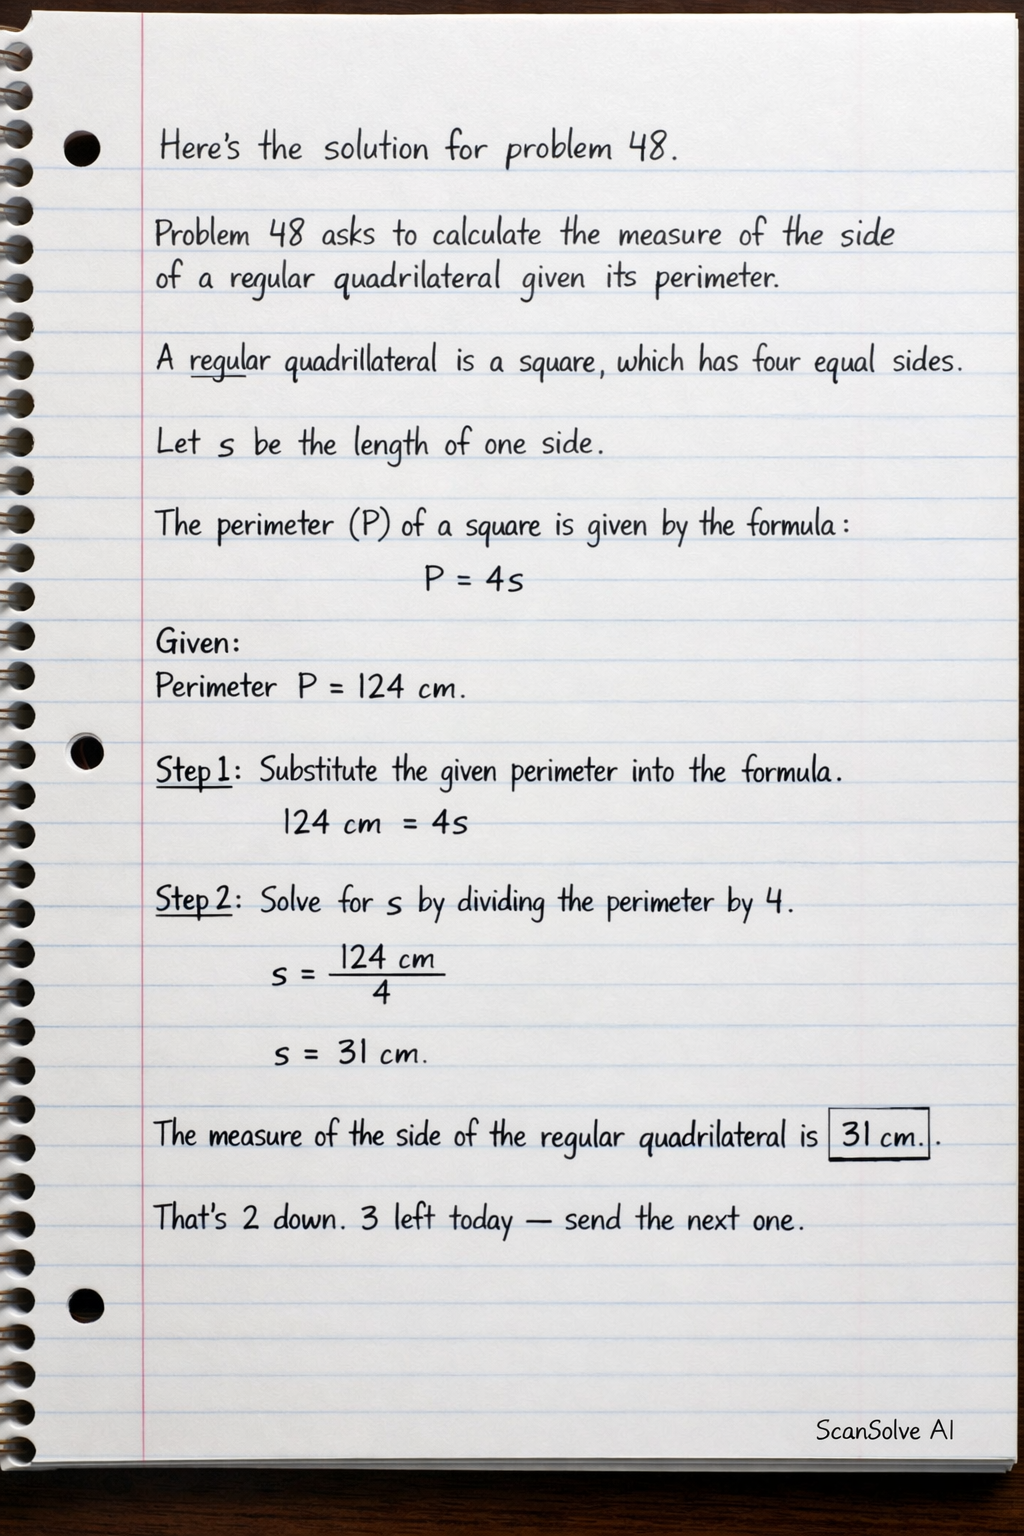 Here's the solution for problem 48.
Problem 48 asks to calculate the measure of the side
of a regular quadrilateral given its perimeter.
A regular quadrillateral is a square, which has four equal sides.
Let s be the length of one side.
The perimeter (P) of a square is given by the formula:
P = 4s
Given:
Perimeter P = 124 cm.
Step 1: Substitute the given perimeter into the formula.
124 cm = 4s
Step 2: Solve for s by dividing the perimeter by 4.
s = 124 cm / 4
s = 31 cm.
The measure of the side of the regular quadrilateral is 31 cm. .
That's 2 down. 3 left today — send the next one.
ScanSolve AI